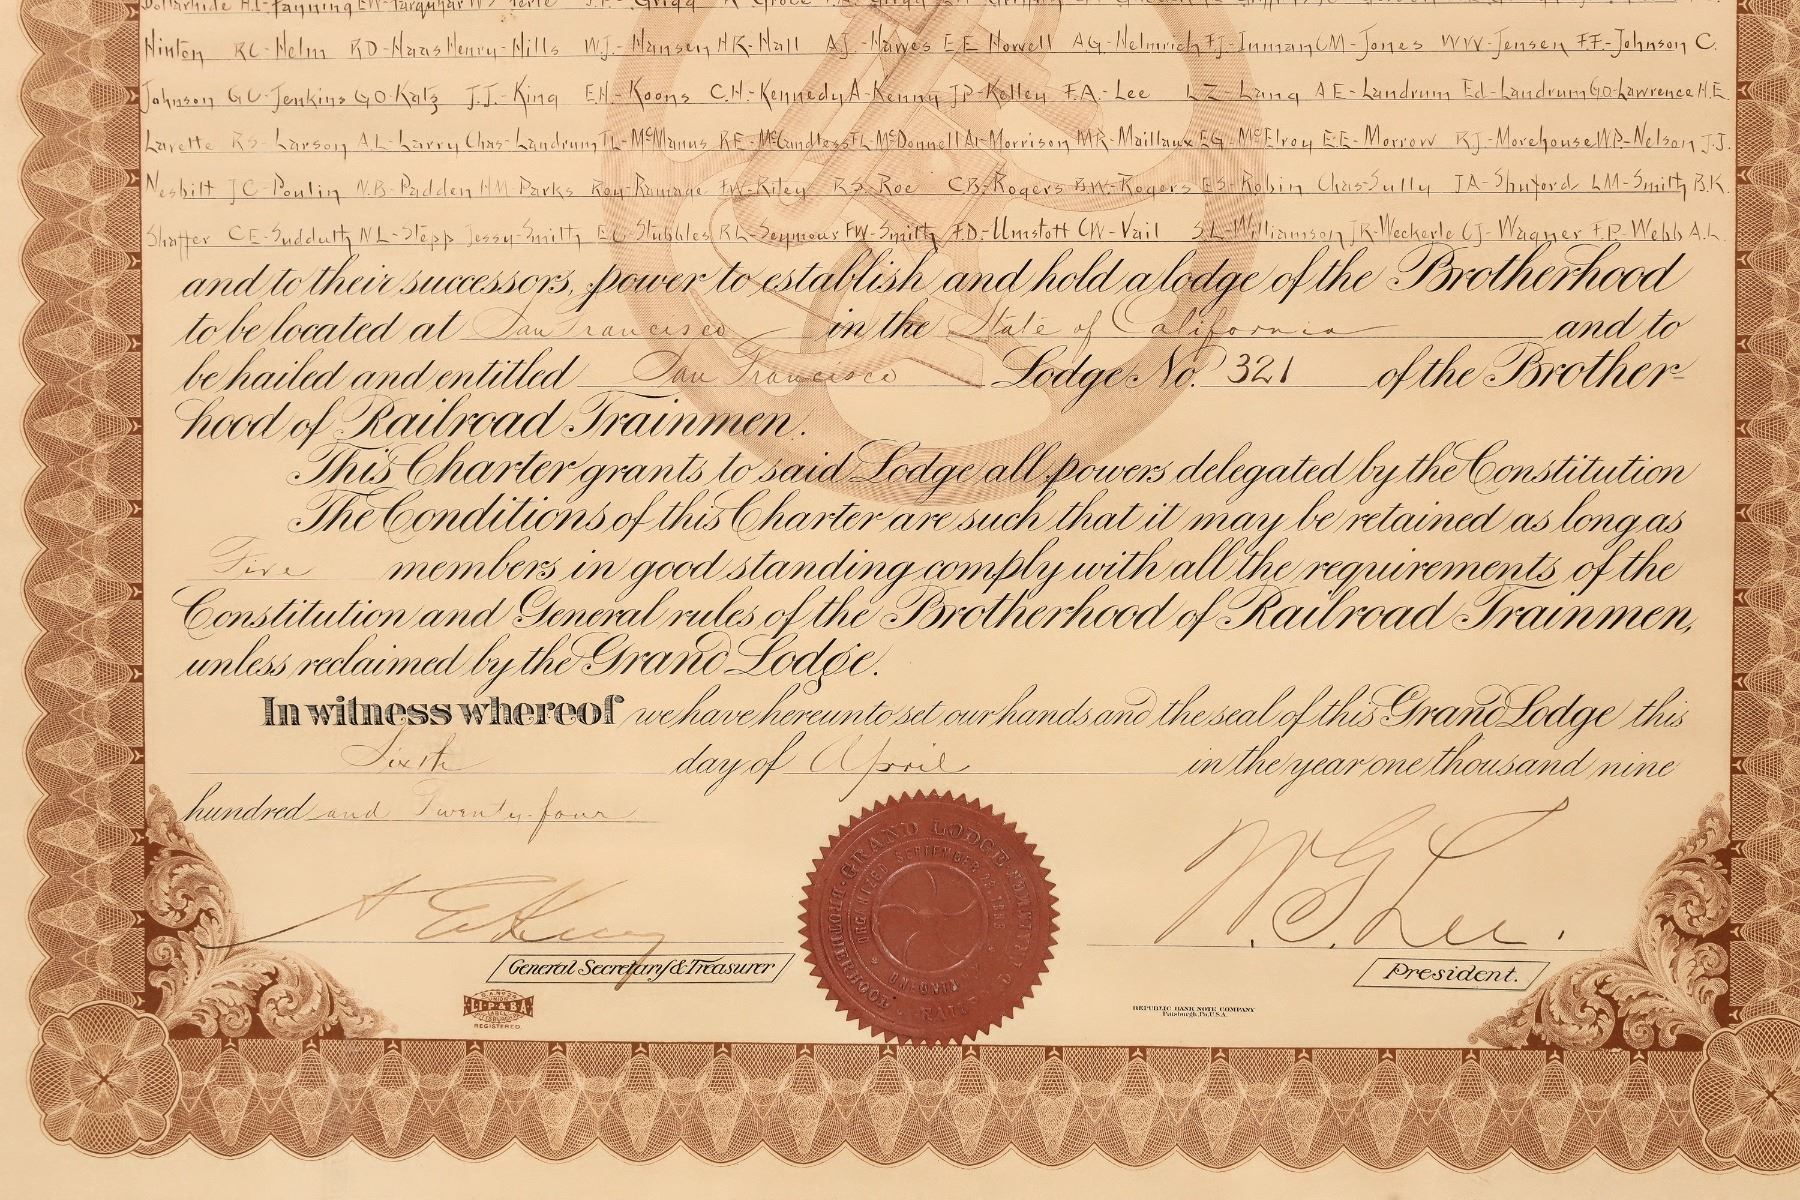 Dollarhide H.I-Fanning EW-Farquhar WS
Hinton RC-Helm RD-Haas Henry-Hills W.J.-Hansen HR-Hall A.J.-Hawes E.E Howell AG-Helmrich F.J-Inman CM-Jones WW-Jensen F.F.-Johnson C.
Johnson GU-Jenkins GO-Katz J.J.-King E.H-Koons C.H-Kennedy A-Kenny J.P-Kelley F.A.-Lee LZ-Lang AE-Landrum Ed-Landrum GO-Lawrence H.E.
Lavette RS-Larson AL-Larry Chas-Landrum JL-McManus RE-McCandless FL McDonnell AI-Morrison MR-Maillaux EG-McElroy E.E-Morrow RJ-Morehouse WP-Nelson J.J.
Nesbitt JC-Poulin N.B-Padden HM-Parks Roy-Ramage FW-Riley RS-Roe C.B.-Rogers BW-Rogers ES-Robin Chas-Sully JA-Shuford LM-Smith B.K.
Shaffer CE-Sudduth NL-Stepp Jessy-Smith EC-Stubbles RL-Seymour FW-Smith F.D.-Umstott CW-Vail SL-Williamson JR-Weckerle CJ-Wagner F.P-Webb A.L.
and to their successors, power to establish and hold a lodge of the Brotherhood
to be located at San Francisco in the State of California and to
be hailed and entitled San Francisco Lodge No. 321 of the Brother-
hood of Railroad Trainmen.
This Charter grants to said Lodge all powers delegated by the Constitution
The Conditions of this Charter are such that it may be retained as long as
Five members in good standing comply with all the requirements of the
Constitution and General rules of the Brotherhood of Railroad Trainmen,
unless reclaimed by the Grand Lodge.
In witness whereof we have hereunto set our hands and the seal of this Grand Lodge this
Sixth day of April in the year one thousand nine
hundred and Twenty-four
GRAND LODGE BROTHERHOOD
ORGANIZED SEPTEMBER 23, 1883
A E King
W. G. Lee.
General Secretary & Treasurer
President.
I.P.&B.A.
REGISTERED.
REPUBLIC BANK NOTE COMPANY
Pittsburgh, Pa. U.S.A.